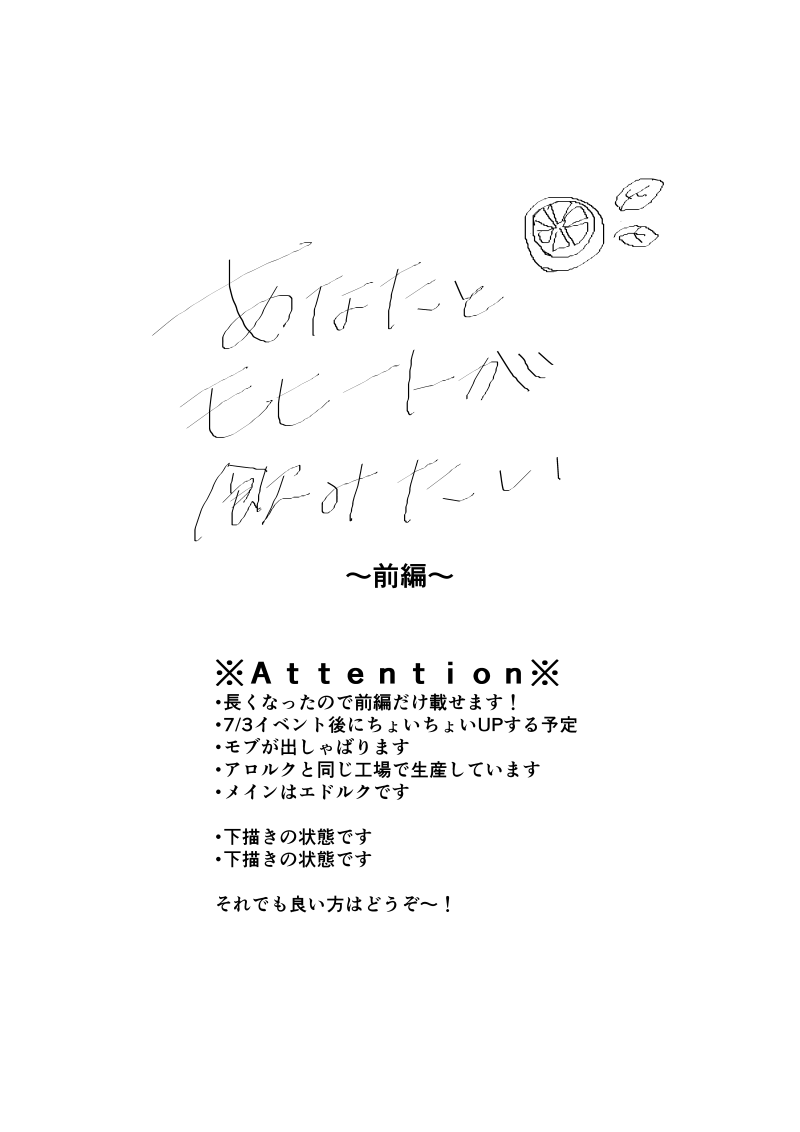 あなたと
モヒートが
飲みたい
～前編～
※Ａｔｔｅｎｔｉｏｎ※
・長くなったので前編だけ載せます！
・7/3イベント後にちょいちょいUPする予定
・モブが出しゃばります
・アロルクと同じ工場で生産しています
・メインはエドルクです
・下描きの状態です
・下描きの状態です
それでも良い方はどうぞ～！